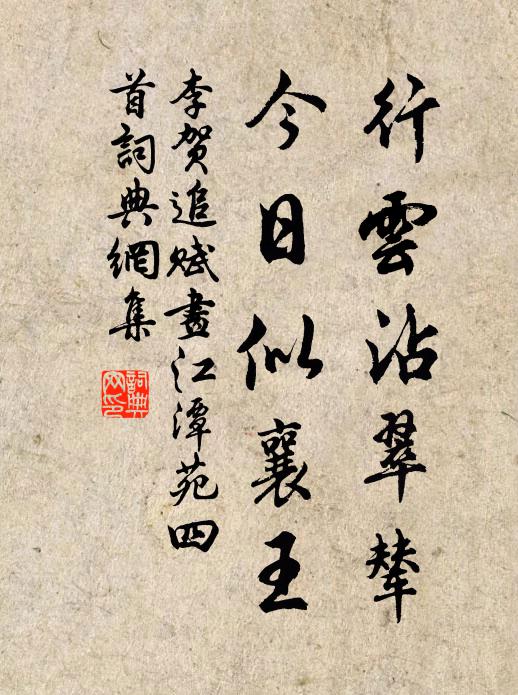 行雲沾翠輦
今日似襄王
李賀追賦畫江潭苑四
首詞典網集
詞典
网印